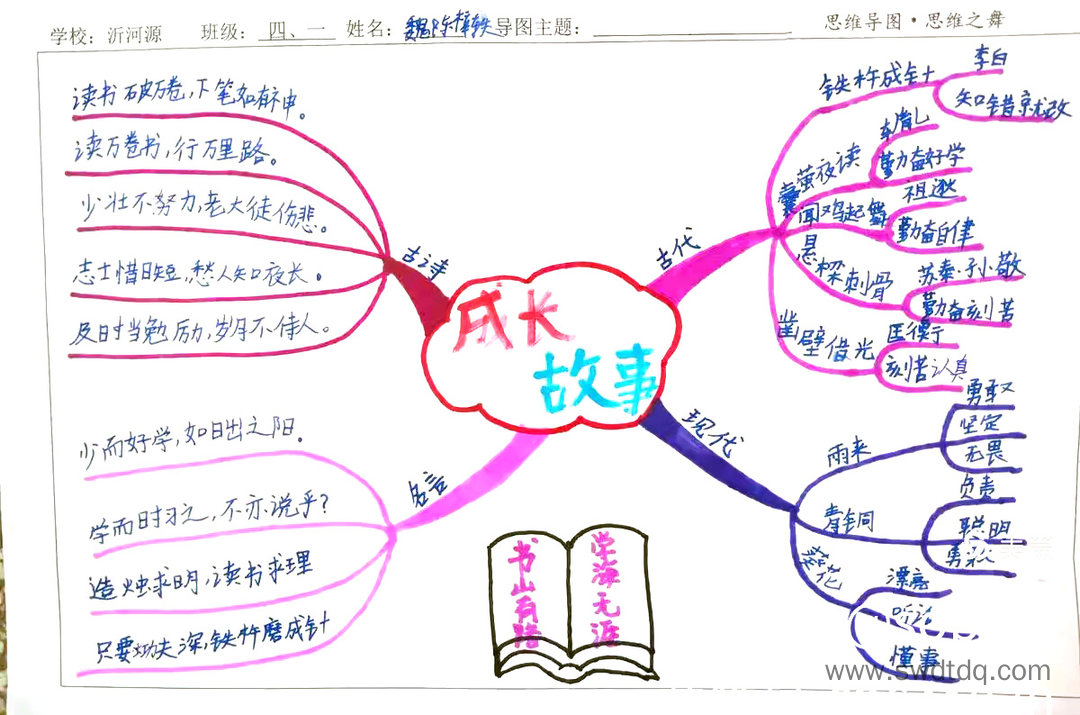 学校：沂河源 班级：四、一 姓名：魏 导图主题：
思维导图·思维之舞
成长
故事
古诗
读书破万卷，下笔如有神。
读万卷书，行万里路。
少壮不努力，老大徒伤悲。
志士惜日短，愁人知夜长。
及时当勉励，岁月不待人。
名言
少而好学，如日出之阳。
学而时习之，不亦说乎？
造烛求明，读书求理
只要功夫深，铁杵磨成针
古代
铁杵成针
李白
知错就改
囊萤夜读
车胤
勤奋好学
闻鸡起舞
祖逖
勤奋自律
悬梁刺骨
苏秦·孙敬
勤奋刻苦
凿壁借光
匡衡
刻苦认真
现代
雨来
勇敢
坚定
无畏
青铜
负责
聪明
勇敢
葵花
漂亮
听话
懂事
书山有路
学海无涯
www.swdtdq.com